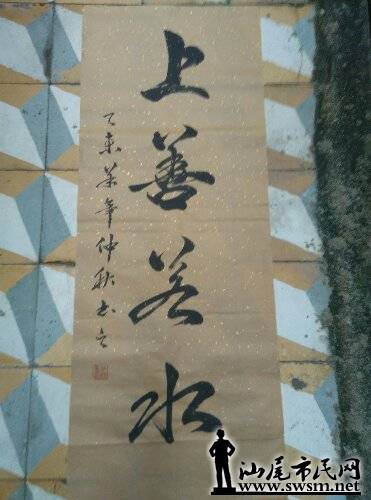 上善若水
乙未羊年仲秋书之
汕尾市民网
www.swsm.net